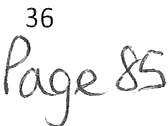 36
Page 85